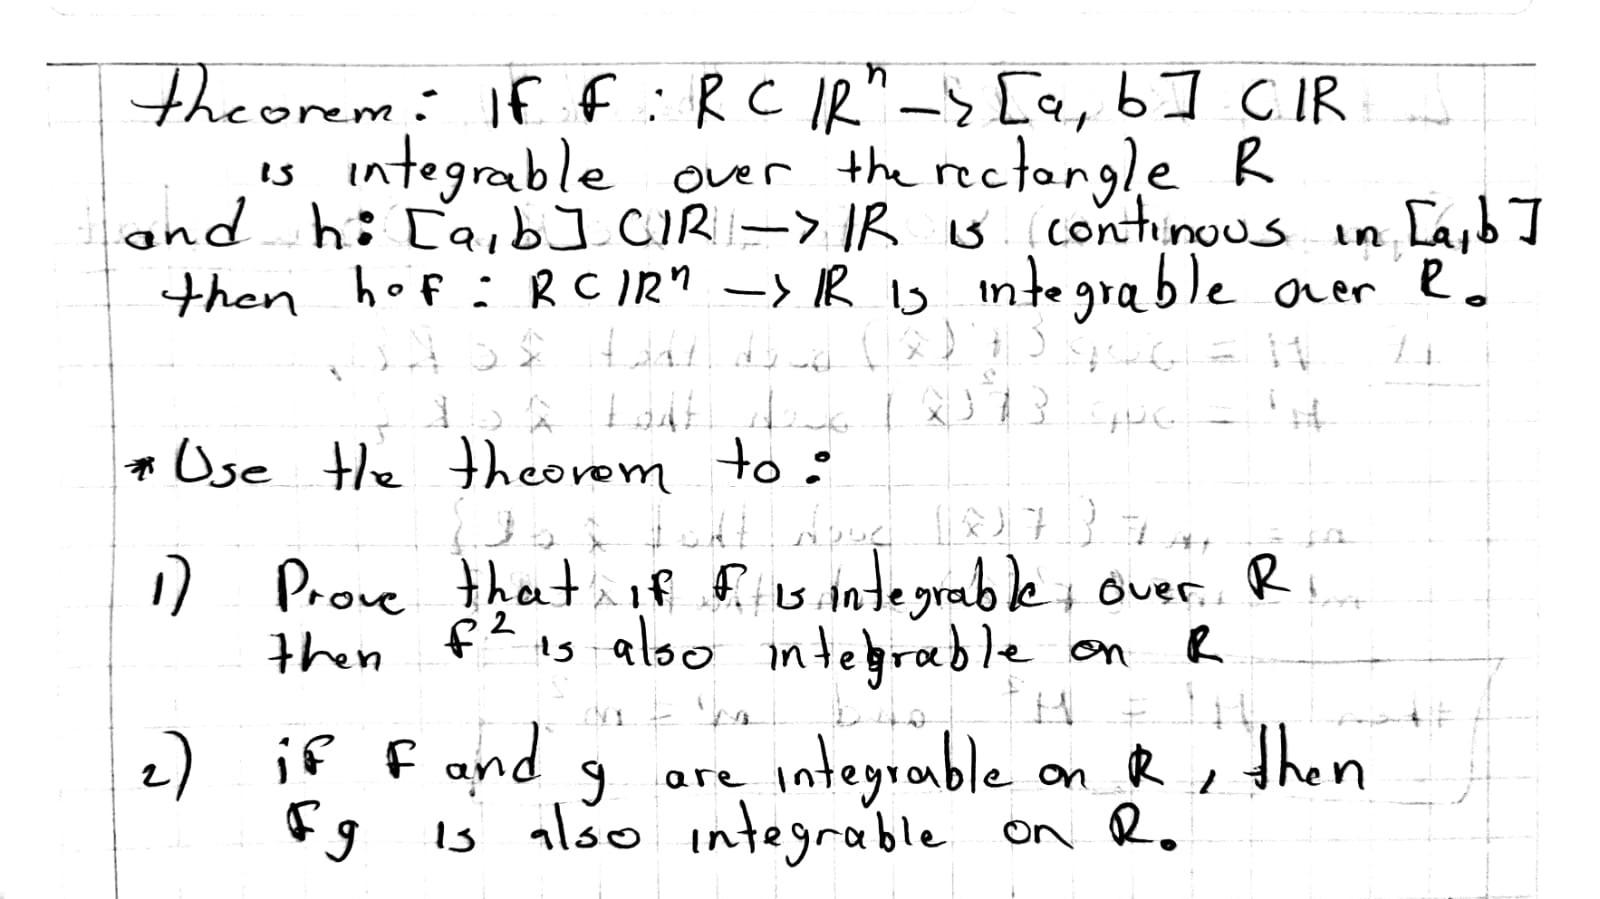 theorem: If f : R ⊂ ℝⁿ -> [a, b] ⊂ ℝ
is integrable over the rectangle R
and h: [a,b] ⊂ ℝ -> ℝ is continous in [a,b]
then h∘f : R ⊂ ℝⁿ -> ℝ is integrable over R.
* Use the theorem to:
1) Prove that if f is integrable over R
then f² is also integrable on R
2) if f and g are integrable on R, then
fg is also integrable on R.